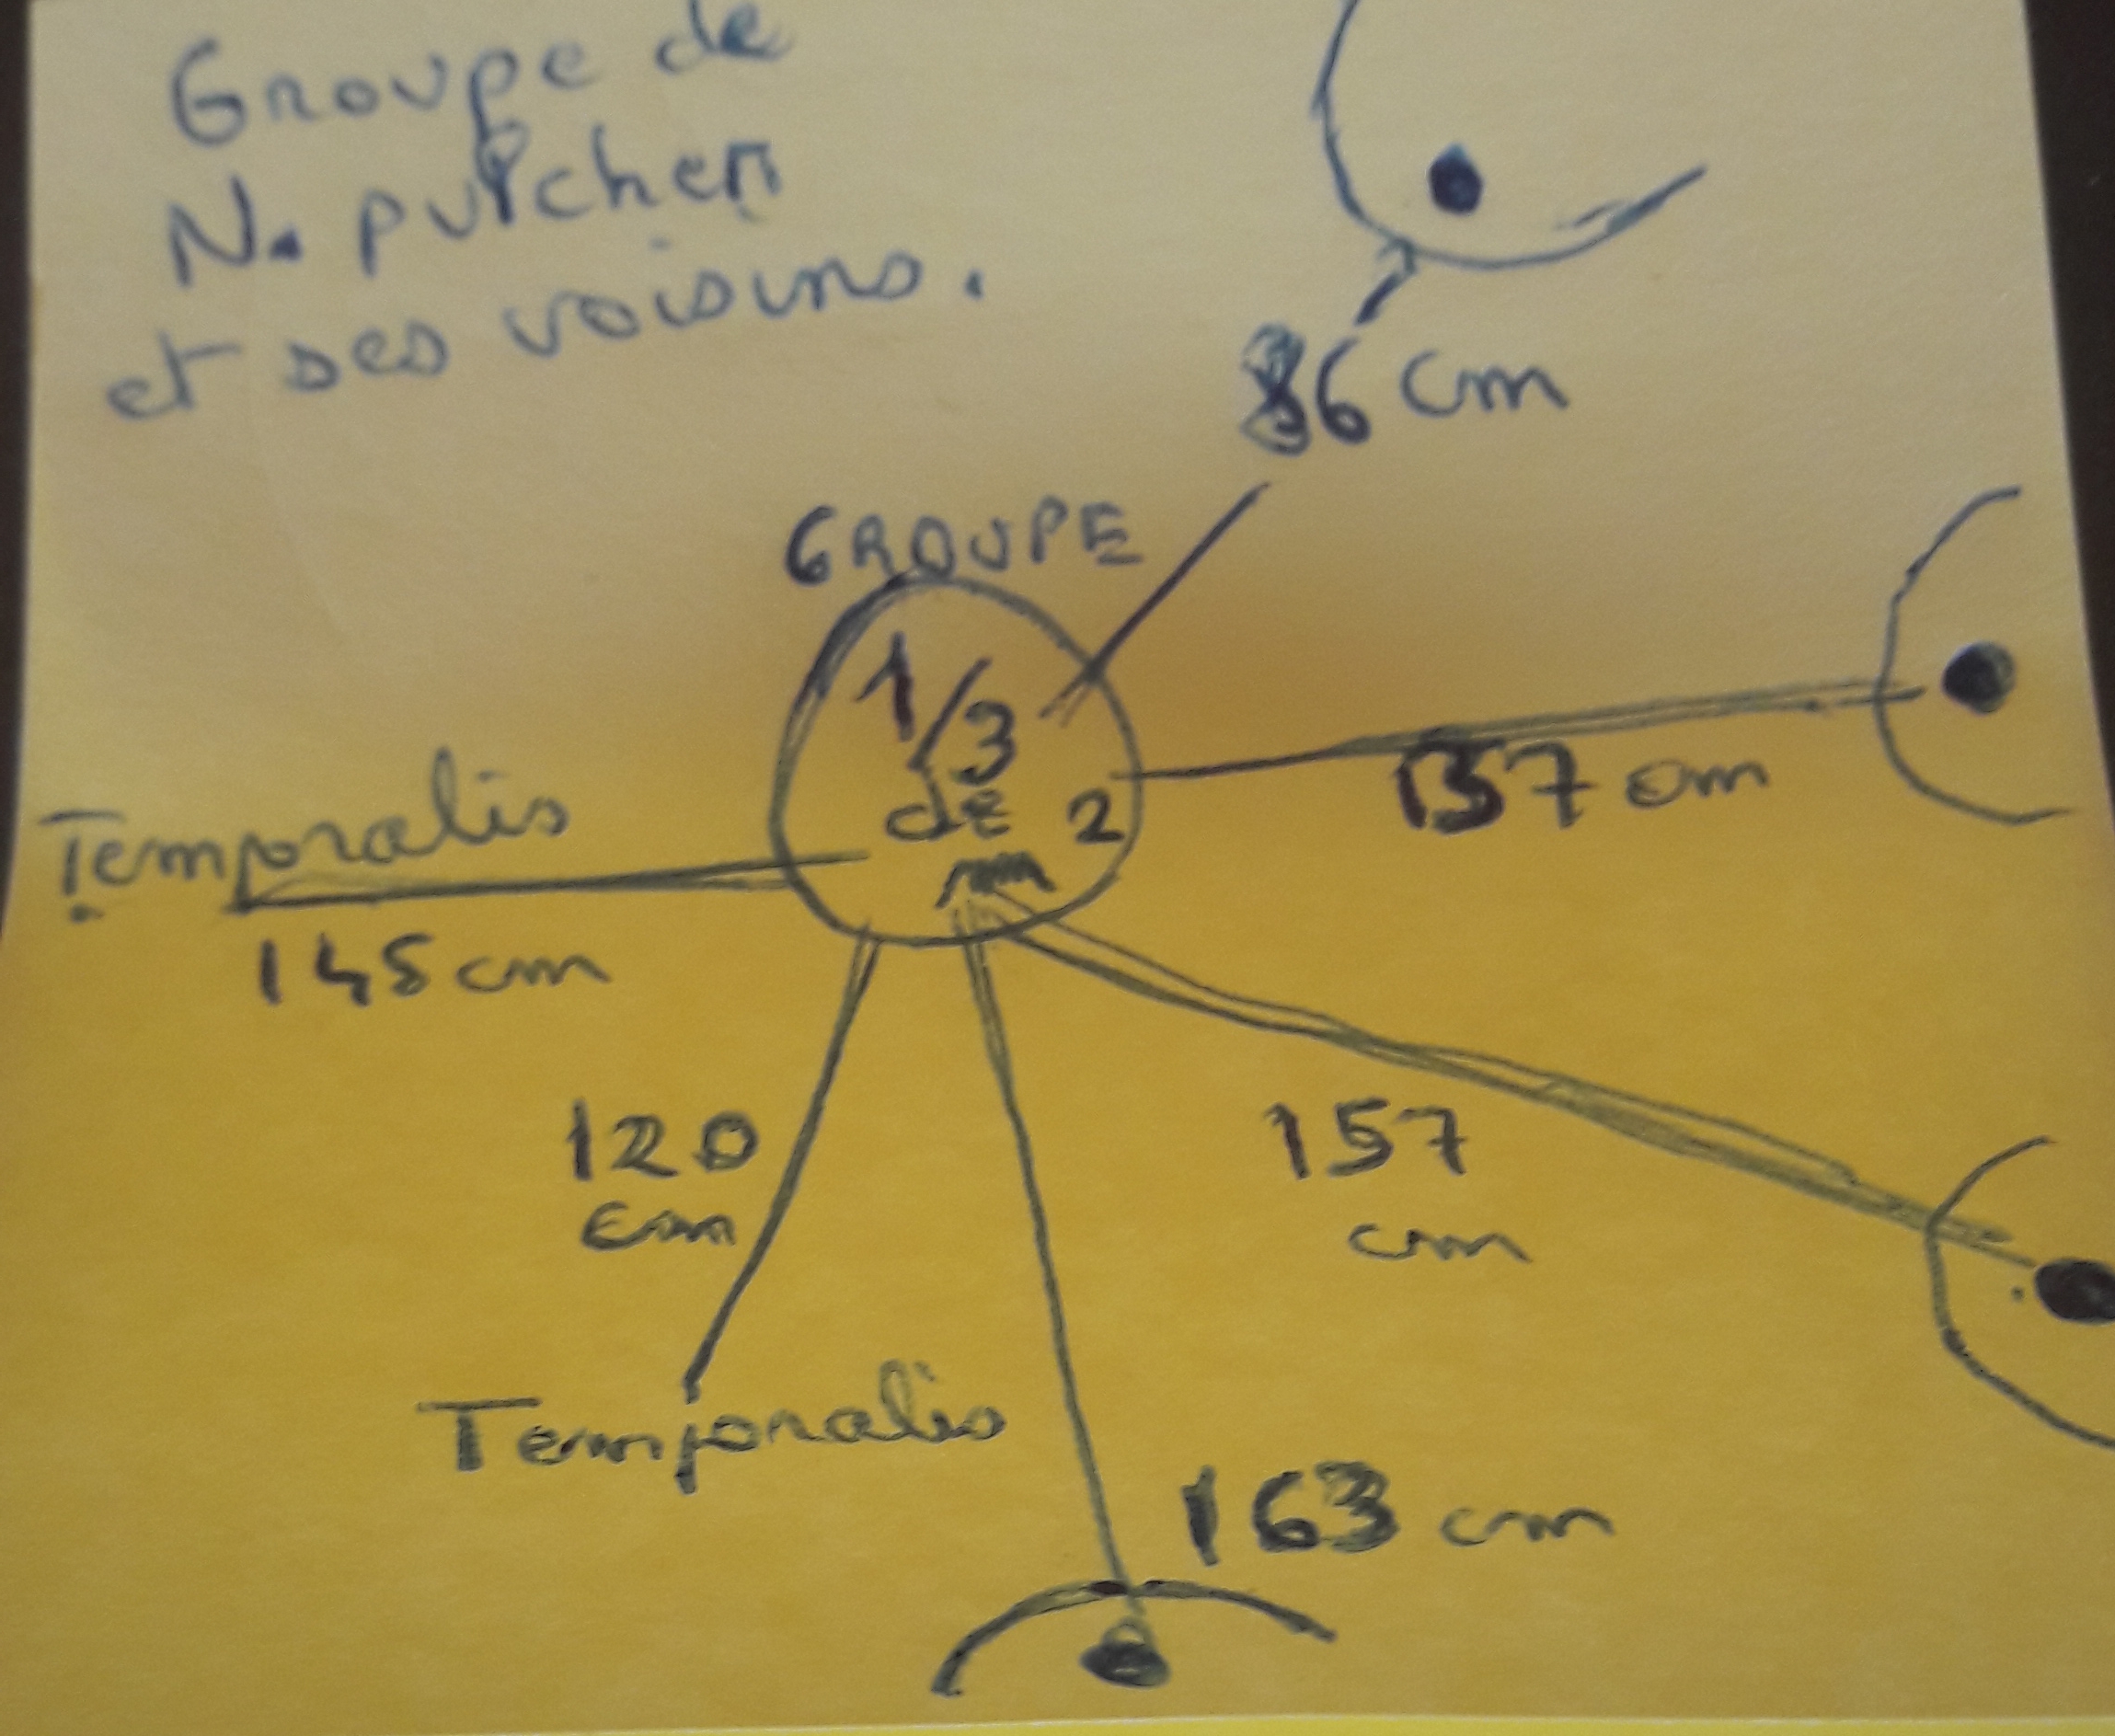 Groupe de
N. pulcher
et ses voisins.
86 cm
GROUPE
1/3
de 2
m
137 cm
Temporalis
145 cm
120
cm
157
cm
Temporalis
163 cm